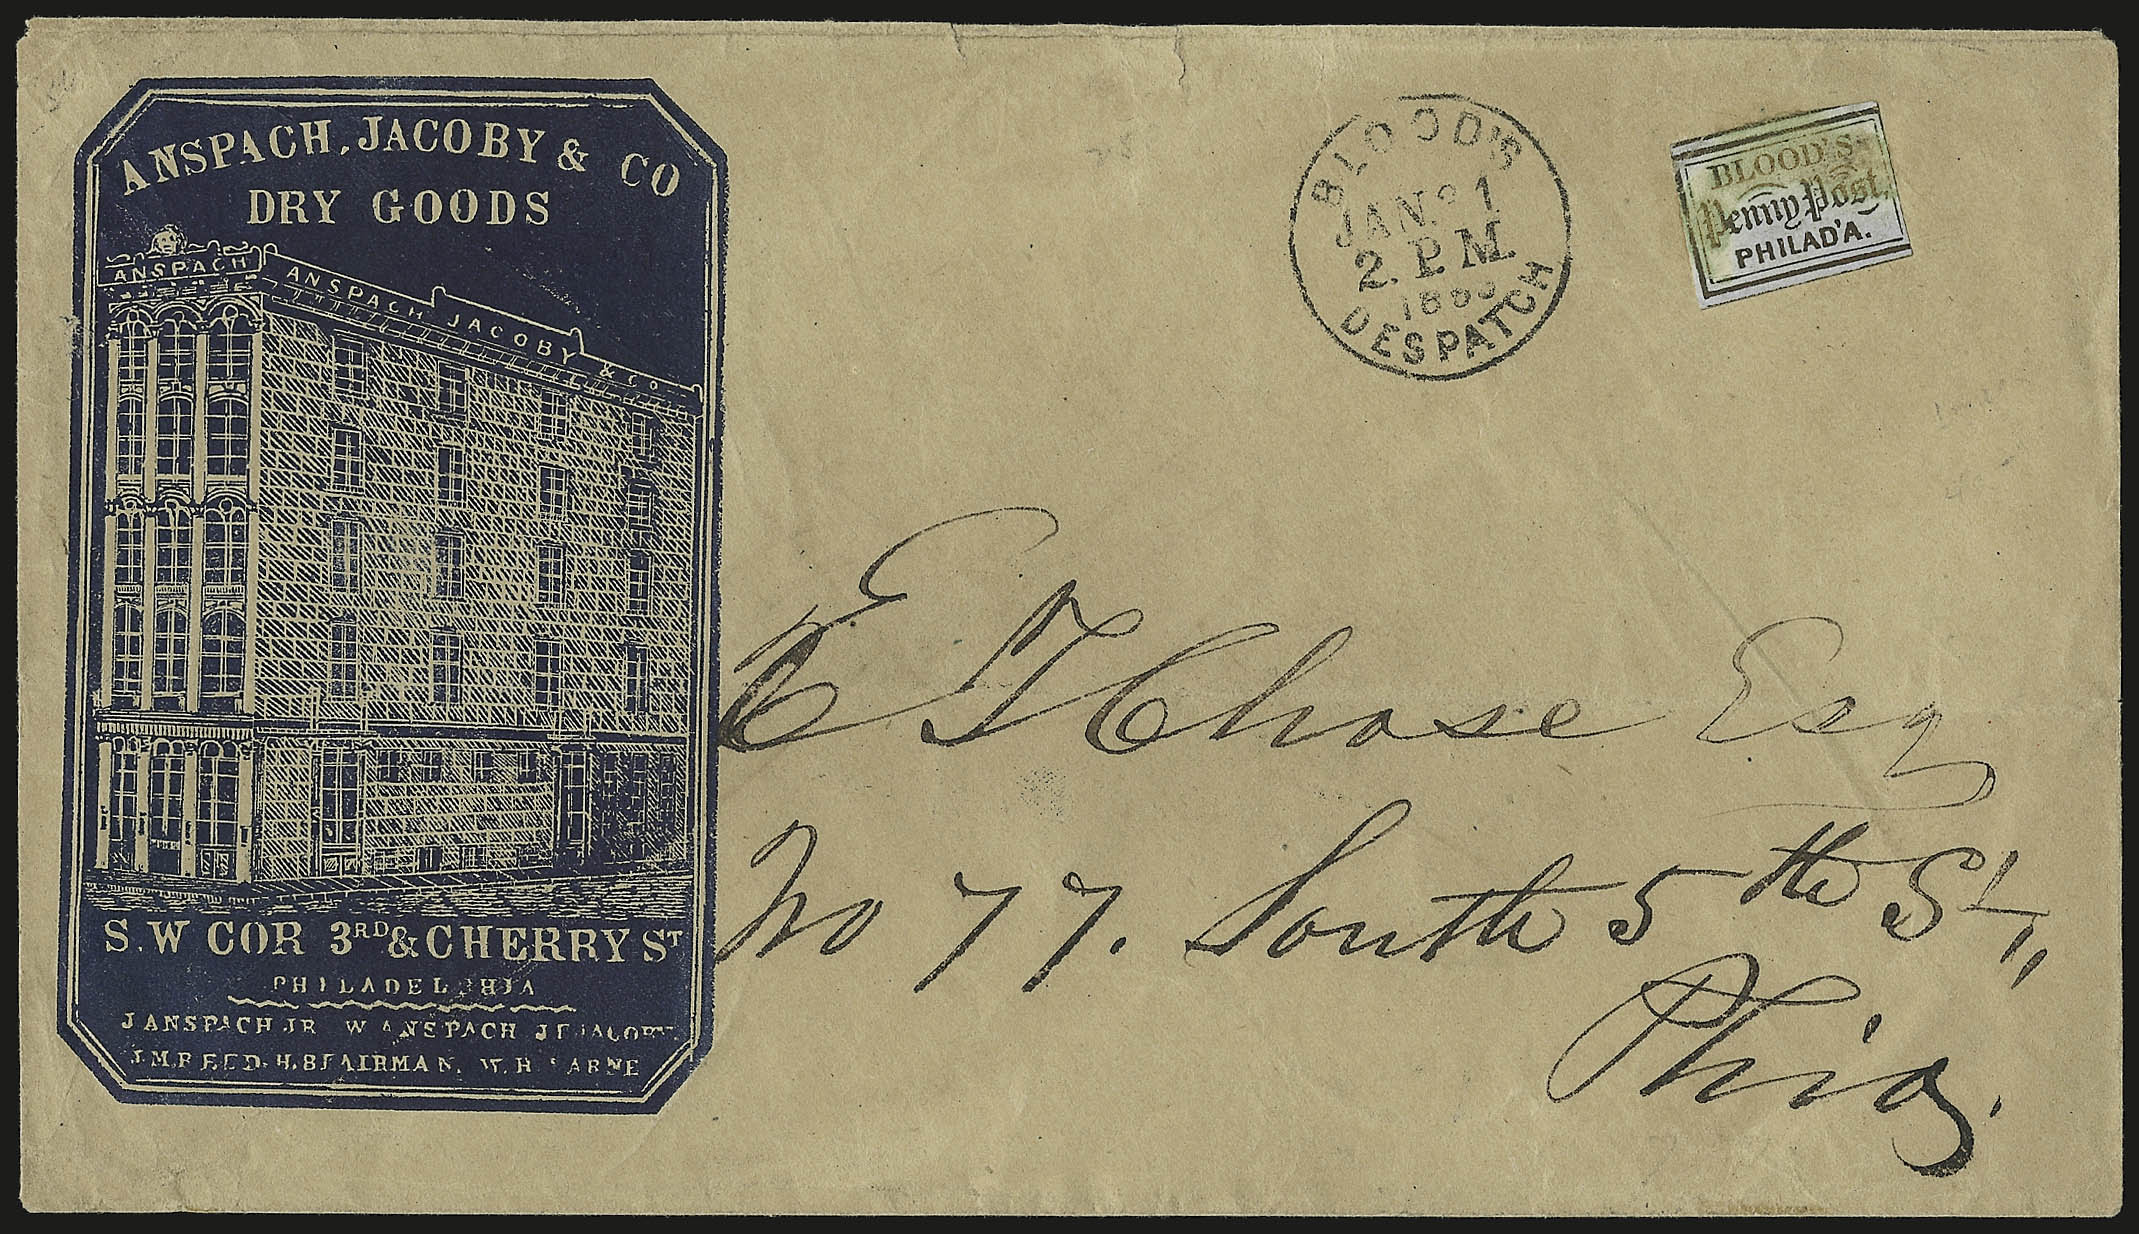 ANSPACH, JACOBY & CO
DRY GOODS
ANSPACH
ANSPACH JACOBY & CO
S. W COR 3RD & CHERRY ST
PHILADELPHIA
J ANSPACH JR W ANSPACH
J.M. REED. H.B FAIRMAN. W. H
BLOOD'S
JAN. 21
2. P.M.
DESPATCH
BLOOD'S
Penny Post,
PHILAD'A.
E T Chase Esq
No 77. South 5th St,,
Phia.